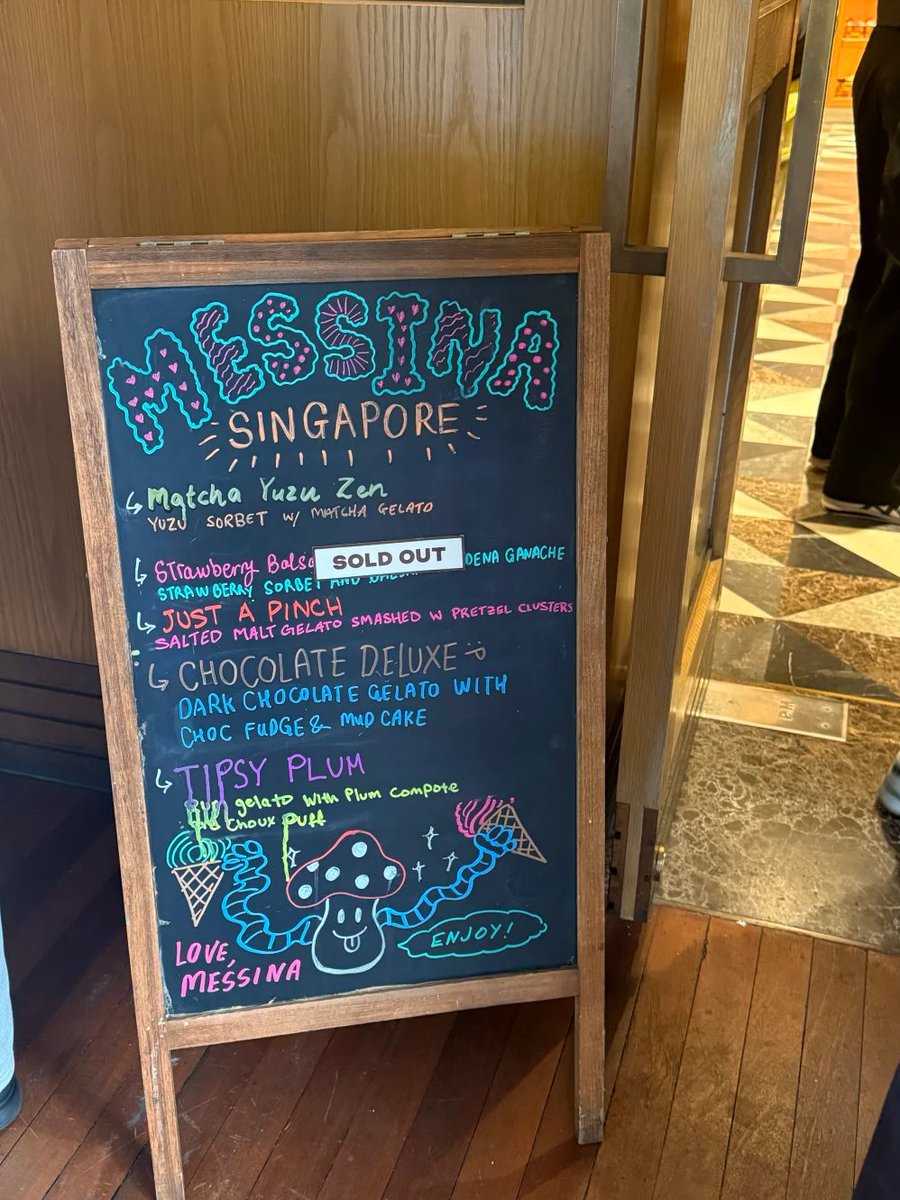 MESSINA
SINGAPORE
Matcha Yuzu Zen
YUZU SORBET W/ MATCHA GELATO
Strawberry
SOLD OUT
GANACHE
STRAWBERRY SORBET AND
JUST A PINCH
SALTED MALT GELATO SMASHED W PRETZEL CLUSTERS
CHOCOLATE DELUXE
DARK CHOCOLATE GELATO WITH
CHOC FUDGE & MUD CAKE
TIPSY PLUM
gelato with Plum compote
choux puff
ENJOY!
LOVE,
MESSINA